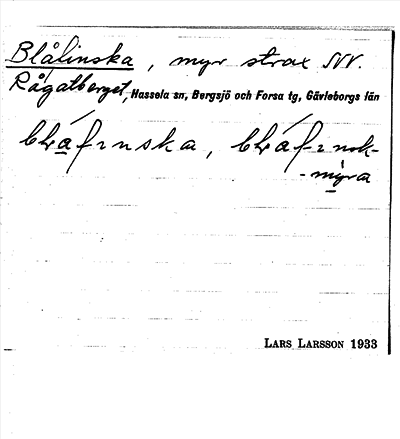 Blålinska, myr strax NV.
Rågatberget, Hassela sn, Bergsjö och Forsa tg, Gävleborgs län
-myra
LARS LARSSON 1933